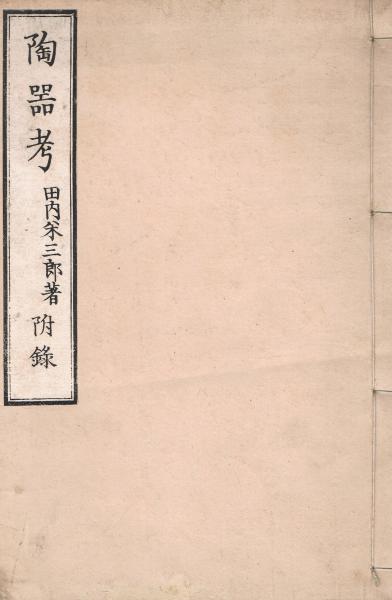 陶噐考 田内米三郎著 附錄